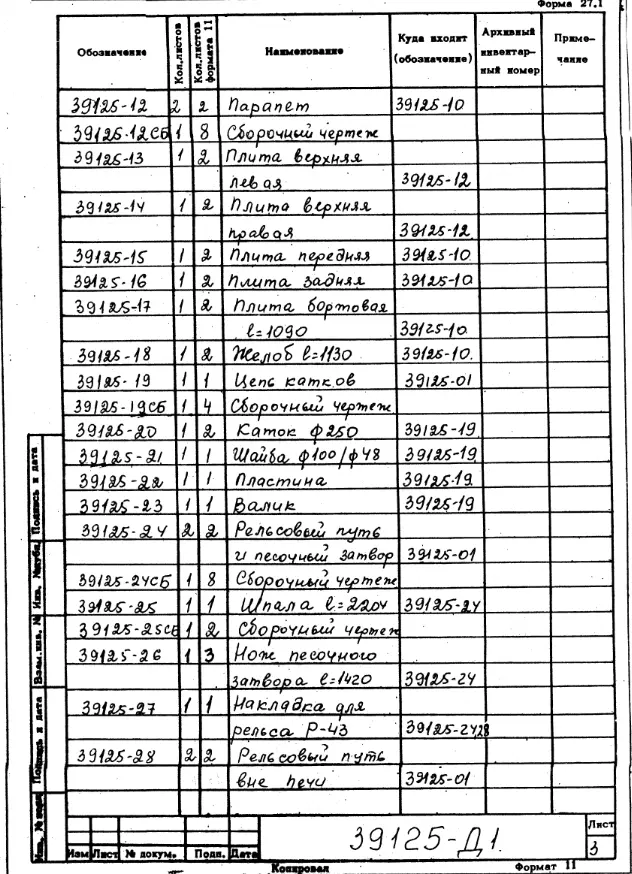 Форма 27.1
Обозначение Кол.листов Кол.листов формата 11 Наименование Куда входит (обозначение) Архивный инвентар- ный номер Приме- чание
39125-12 2 2 Парапет 39125-10
39125-12СБ 1 8 Сборочный чертеж
39125-13 1 2 Плита верхняя
левая 39125-12
39125-14 1 2 Плита верхняя
правая 39125-12
39125-15 1 2 Плита передняя 39125-10
39125-16 1 2 Плита задняя 39125-10
39125-17 1 2 Плита бортовая
l=1090 39125-10
39125-18 1 2 Желоб l=1130 39125-10.
39125-19 1 1 Цепь катков 39125-01
39125-19СБ 1 4 Сборочный чертеж
39125-20 1 2 Каток ф250 39125-19
39125-21 1 1 Шайба ф100/ф48 39125-19
39125-22 1 1 Пластина 39125-19
39125-23 1 1 Валик 39125-19
39125-24 2 2 Рельсовый путь
и песочный затвор 39125-01
39125-24СБ 1 8 Сборочный чертеж
39125-25 1 1 Шпала l=2204 39125-24
39125-25СБ 1 2 Сборочный чертеж
39125-26 1 3 Нож песочного
затвора l=1420 39125-24
39125-27 1 1 Накладка для
рельса Р-43 39125-24,28
39125-28 2 2 Рельсовый путь
вне печи 39125-01
Подпись и дата
Инв. № дубл.
Взам. инв. №
Подпись и дата
Инв. № подл.
39125-Д1.
Лист
3
Изм Лист № докум. Подп. Дата
Копировал Формат 11